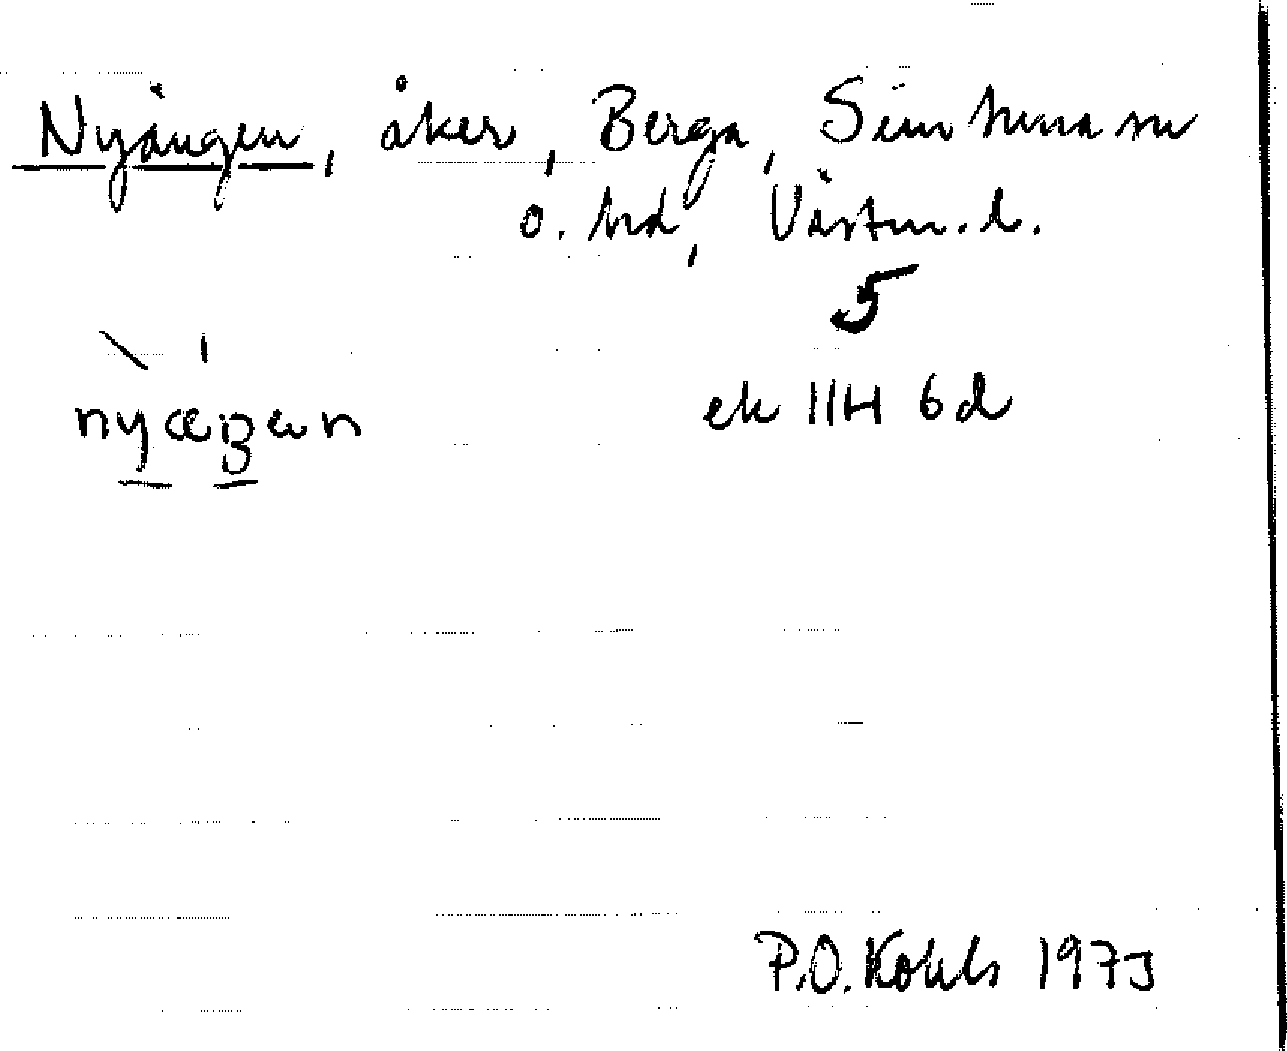 Nyängen, åker, Berga, Simtuna sn
o. hd, Västm. l.
5
ek 11H 6d
P.O. Kohls 1973